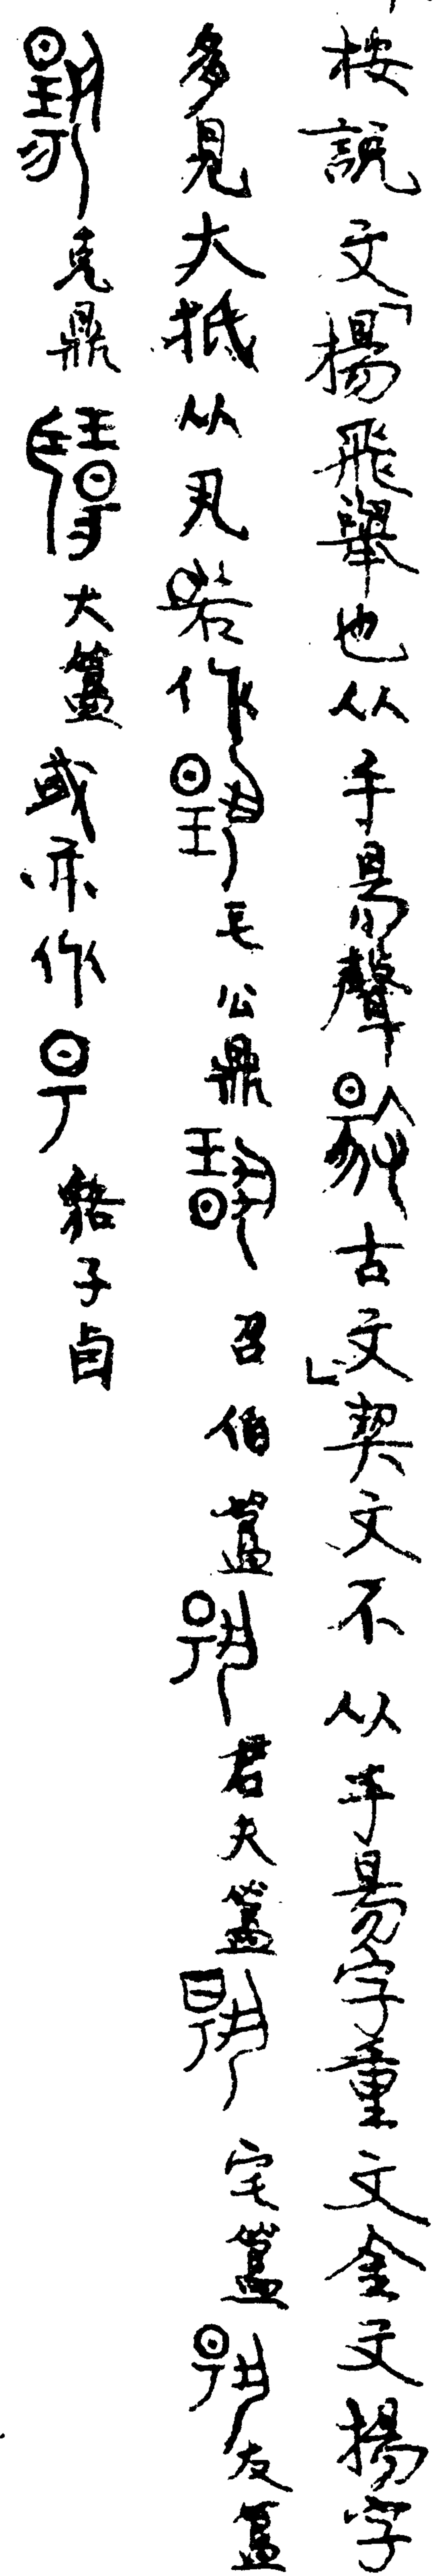 按說文「揚飛舉也从手昜聲𢾙古文」契文不从手昜字重文金文揚字
多見大抵从丮若作毛公鼎召伯簋君夫簋宅簋友簋
克鼎大簋或亦作貉子卣